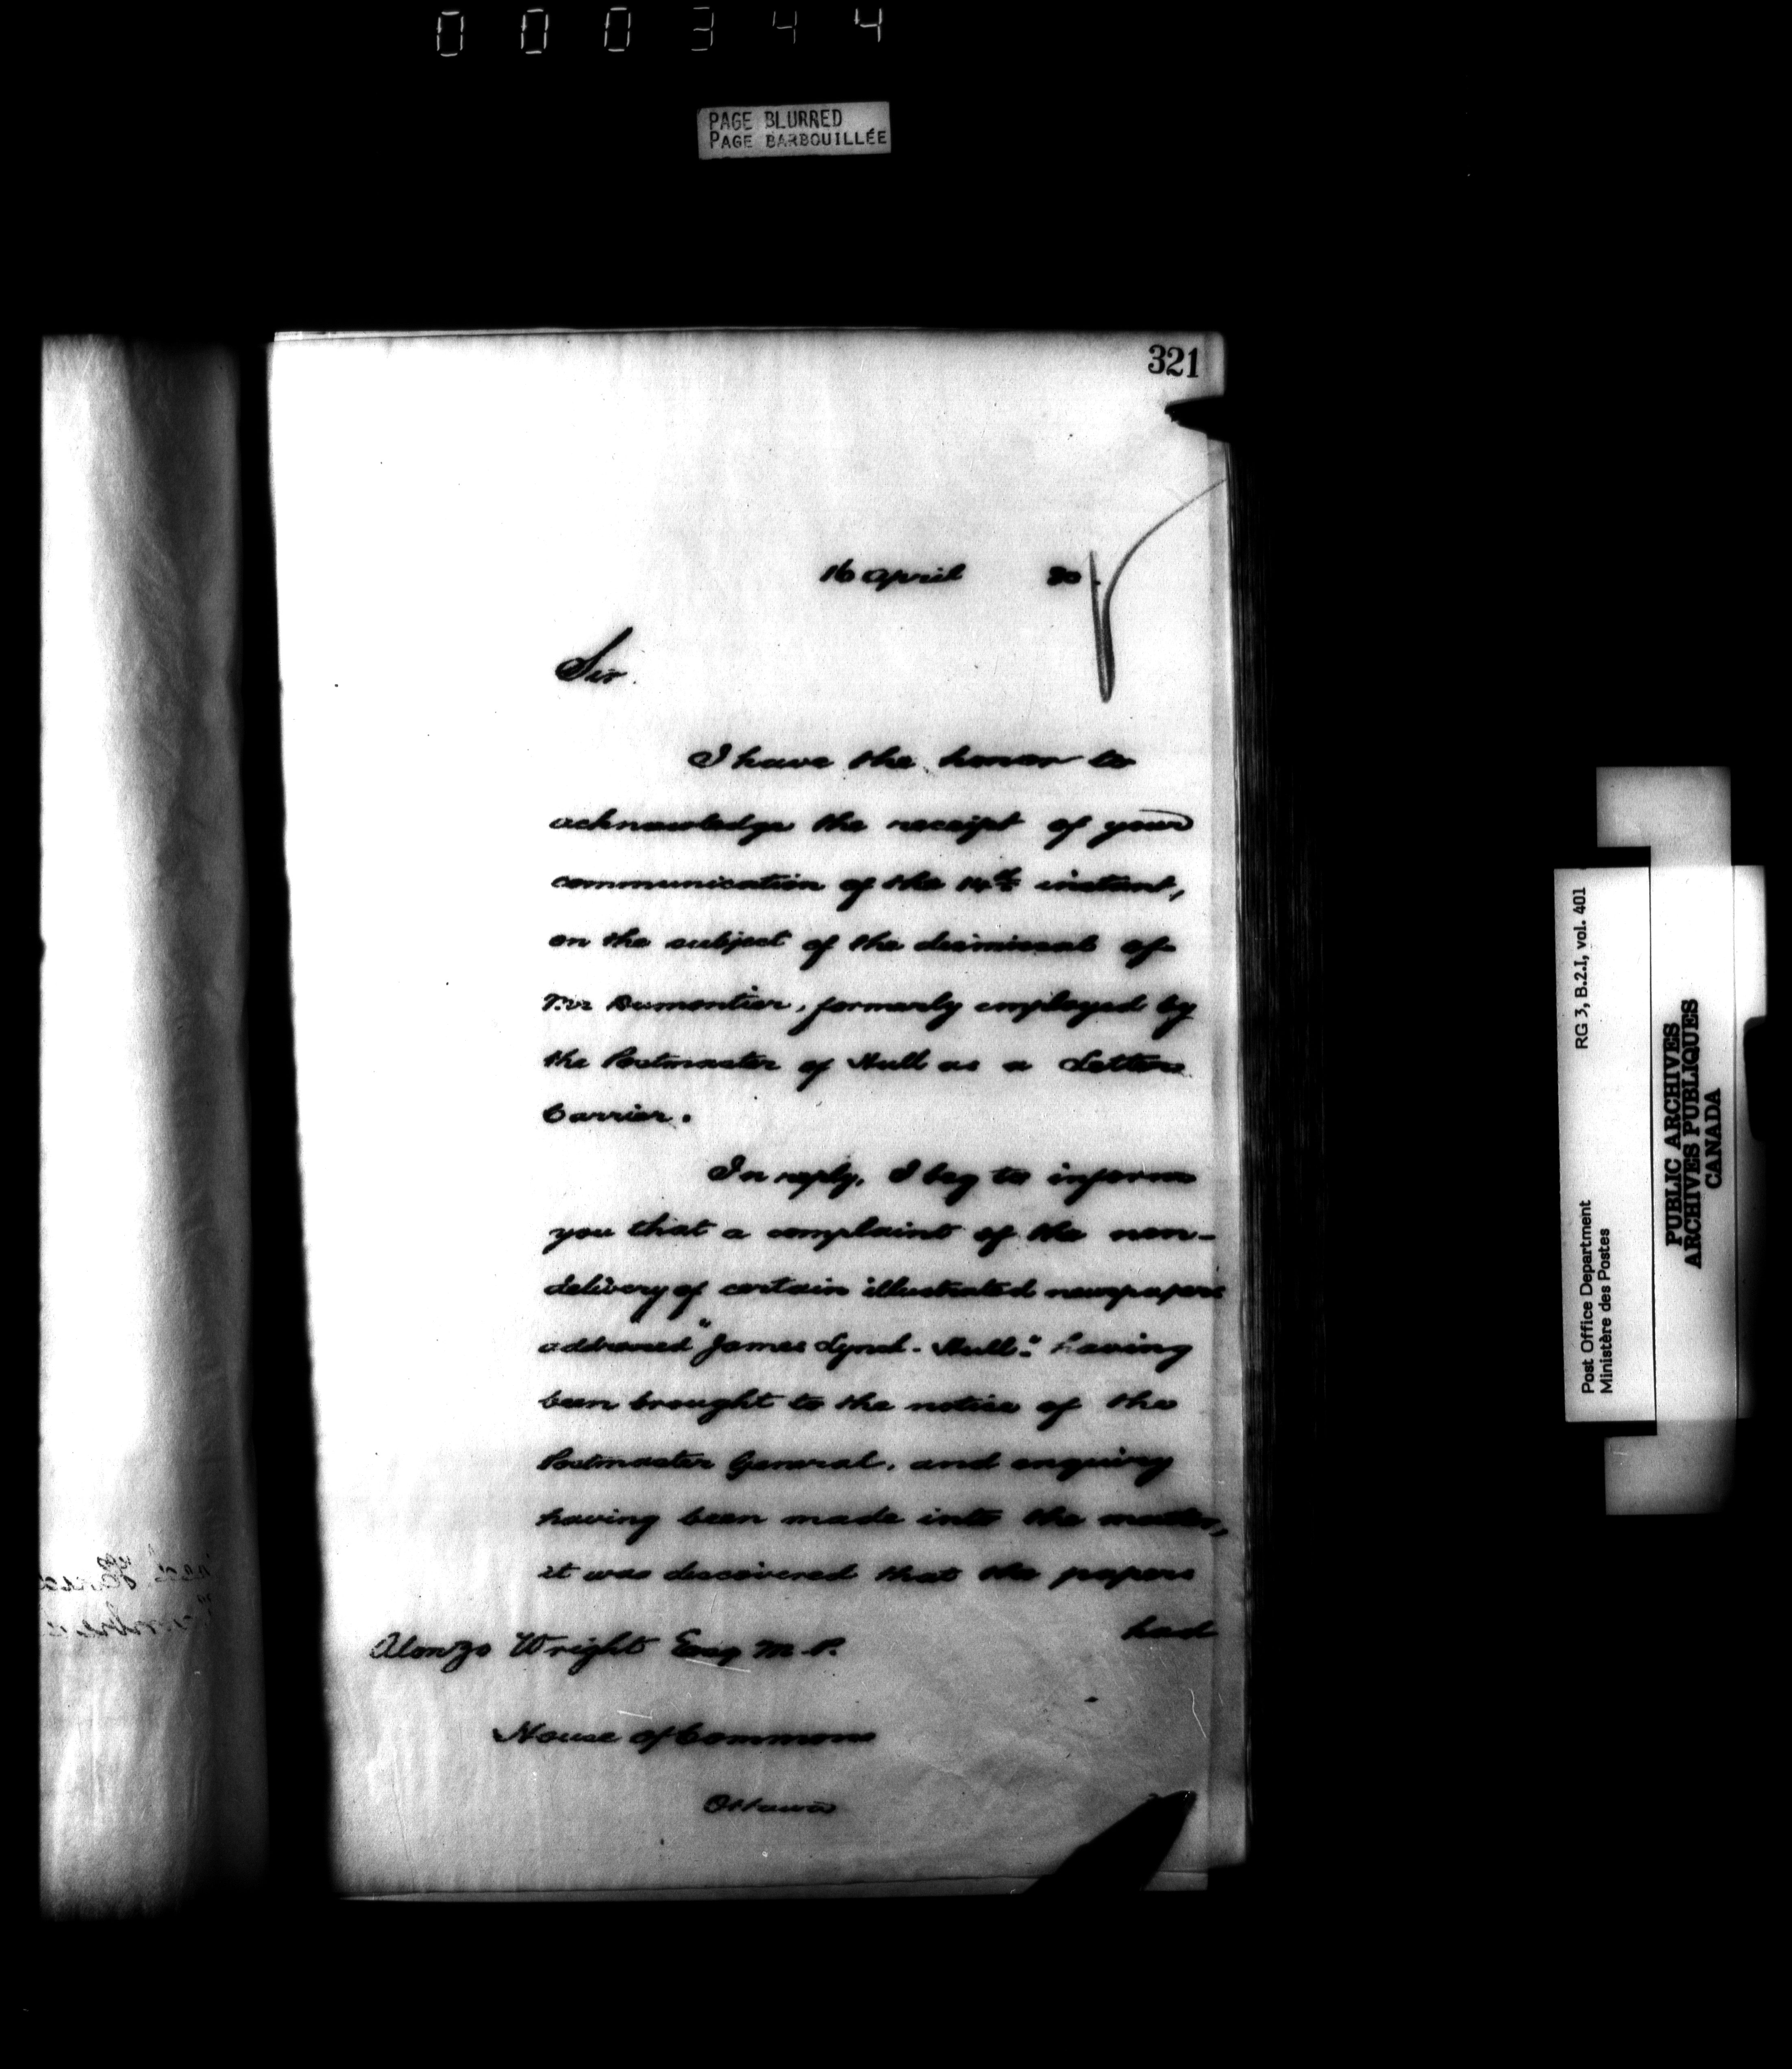 000344
PAGE BLURRED
PAGE BARBOUILLÉE
321
16 April 80.
Sir.
I have the honor to
acknowledge the receipt of your
communication of the 14th instant,
on the subject of the dismissal of
Mr Dumontier, formerly employed by
the Postmaster of Hull as a Letter
Carrier.
In reply, I beg to inform
you that a complaint of the non-
delivery of certain illustrated newspapers
addressed "James Lynch. Hull." having
been brought to the notice of the
Postmaster General, and enquiry
having been made into the matter,
it was discovered that the papers
had
Alonzo Wright Esq M.P.
House of Commons
Ottawa
RG 3, B.2.I, vol. 401
Post Office Department
Ministère des Postes
PUBLIC ARCHIVES
ARCHIVES PUBLIQUES
CANADA